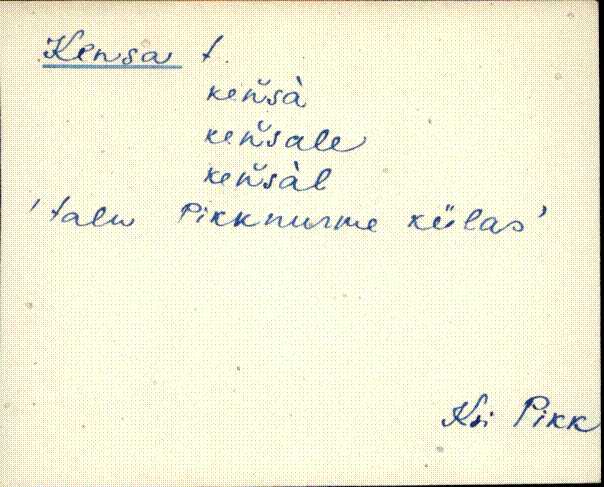 Kensa t.
ken̆sà
ken̆sale
ken̆sàl
'talu Pikknurme külas'
Ksi Pikk